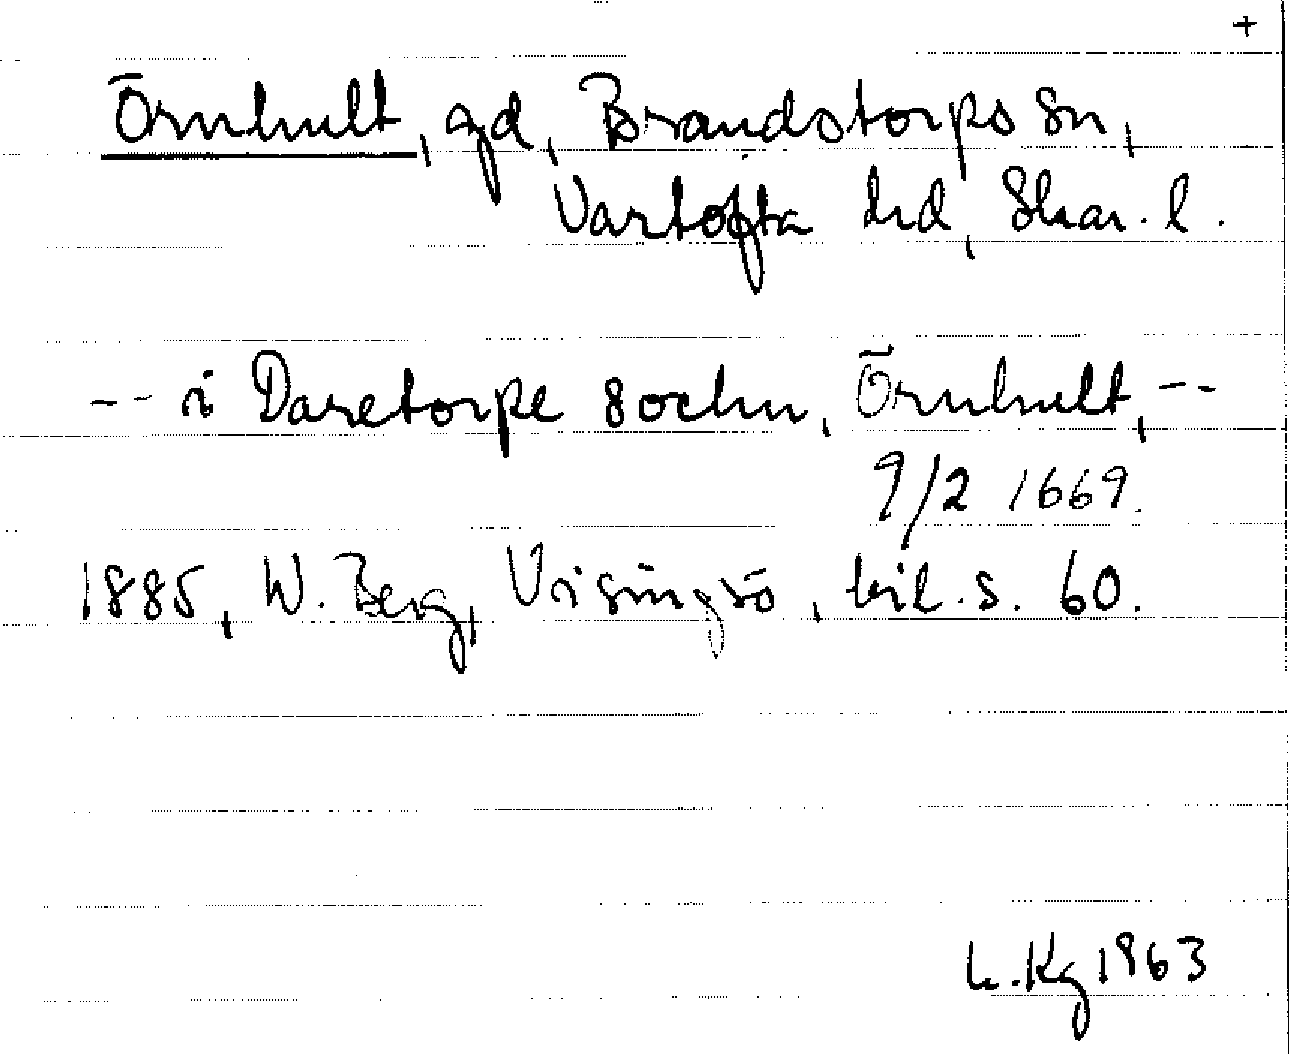 +
Örnhult, gd, Brandstorps sn,
Vartofta hd, Skar. l.
-- i Daretorps sochn, Örnhult, --
9/2 1669.
1885, W. Berg, Visingsö, bil. s. 60.
L. Kg 1963